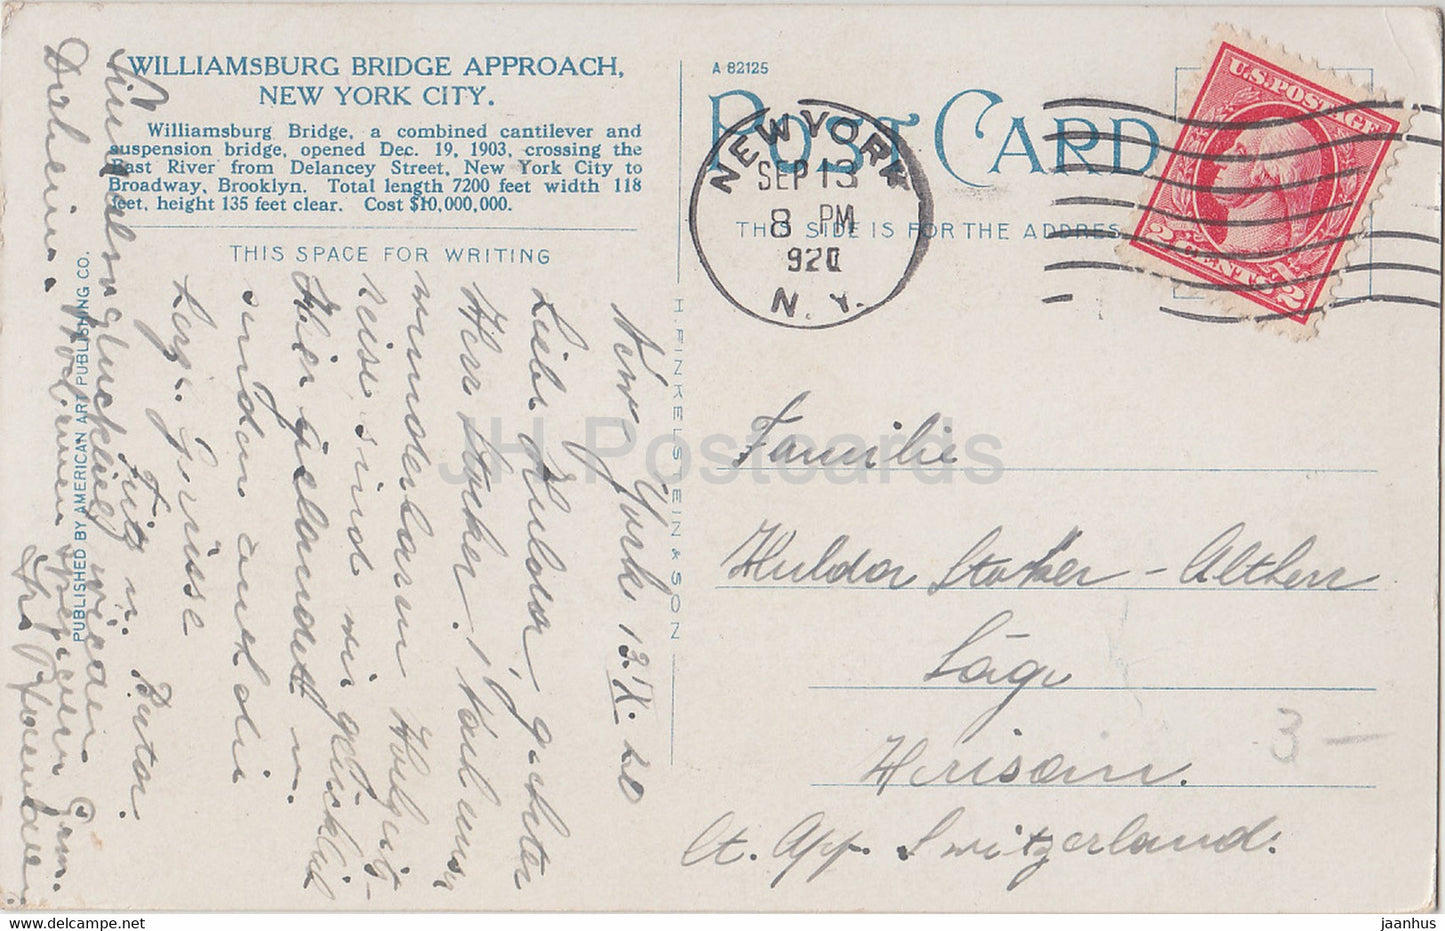 WILLIAMSBURG BRIDGE APPROACH,
NEW YORK CITY.
Williamsburg Bridge, a combined cantilever and
suspension bridge, opened Dec. 19, 1903, crossing the
East River from Delancey Street, New York City to
Broadway, Brooklyn. Total length 7200 feet width 118
feet, height 135 feet clear. Cost $10,000,000.
THIS SPACE FOR WRITING
A 82125
POST CARD
THIS SIDE IS FOR THE ADDRES
NEW YORK
SEP 13
8 PM
920
N.Y.
U.S. POSTAGE
2 CENTS 2
PUBLISHED BY AMERICAN ART PUBLISHING CO.
H FINKELSTEIN & SON
New York 13.IX.20
Liebe Hulda, geehrter
Herr Stoker! Nach
wunderbarer
reise sind wir glücklich
hier gelandet u.
senden auch dir
herzl. Grüsse
Fritz u.
wieder
Daheim.
Familie
Hulda Stoker - Altherr
Säge
Herisau.
Ct. App. Switzerland.
3 -
JH Postcards
jaanhus